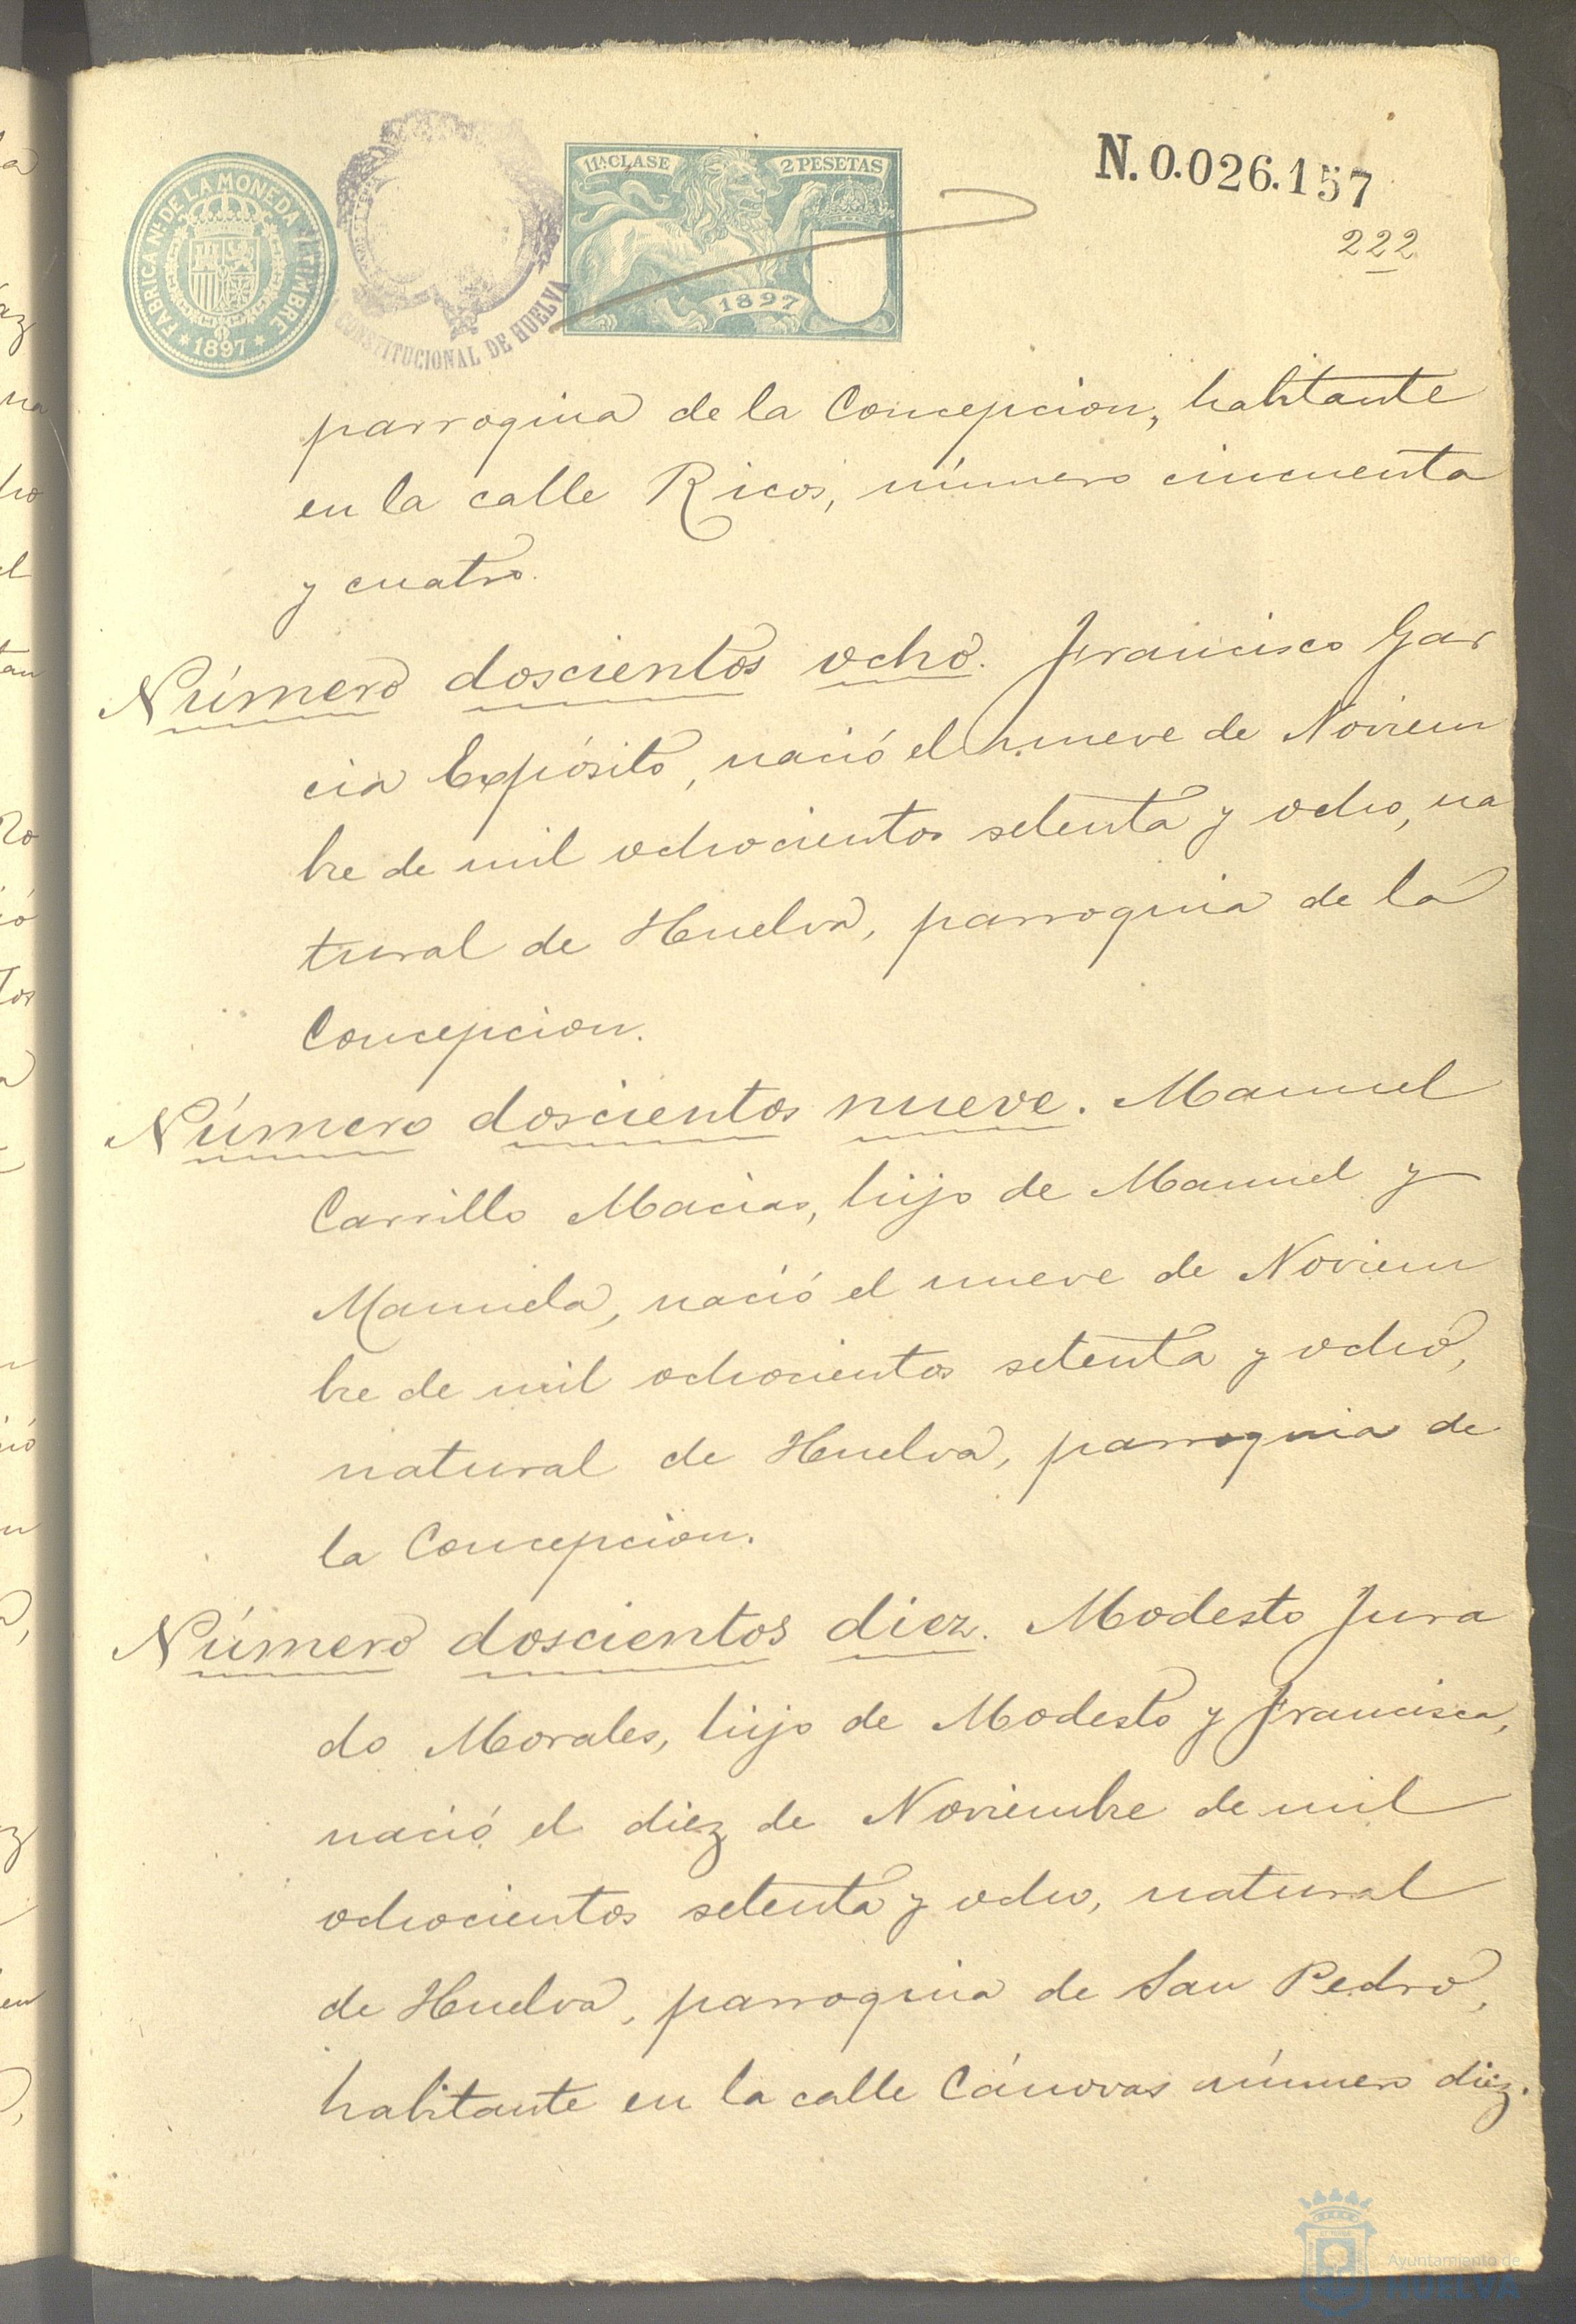 FABRICA Nal DE LA MONEDA Y TIMBRE
* 1897 *
CONSTITUCIONAL DE HUELVA
11ª CLASE 2 PESETAS
1897
N. 0.026.157
222
parroquia de la Concepcion, habitante
en la calle Ricos, número cincuenta
y cuatro.
Número doscientos ocho. Francisco Gar
cia Expósito, nació el nueve de Noviem
bre de mil ochocientos setenta y ocho, na
tural de Huelva, parroquia de la
Concepcion.
Número doscientos nueve. Manuel
Carrillo Macias, hijo de Manuel y
Manuela, nació el nueve de Noviem
bre de mil ochocientos setenta y ocho,
natural de Huelva, parroquia de
la Concepcion.
Número doscientos diez. Modesto Jura
do Morales, hijo de Modesto y Francisca,
nació el diez de Noviembre de mil
ochocientos setenta y ocho, natural
de Huelva, parroquia de San Pedro,
habitante en la calle Cánovas número diez.
Ayuntamiento de
HUELVA